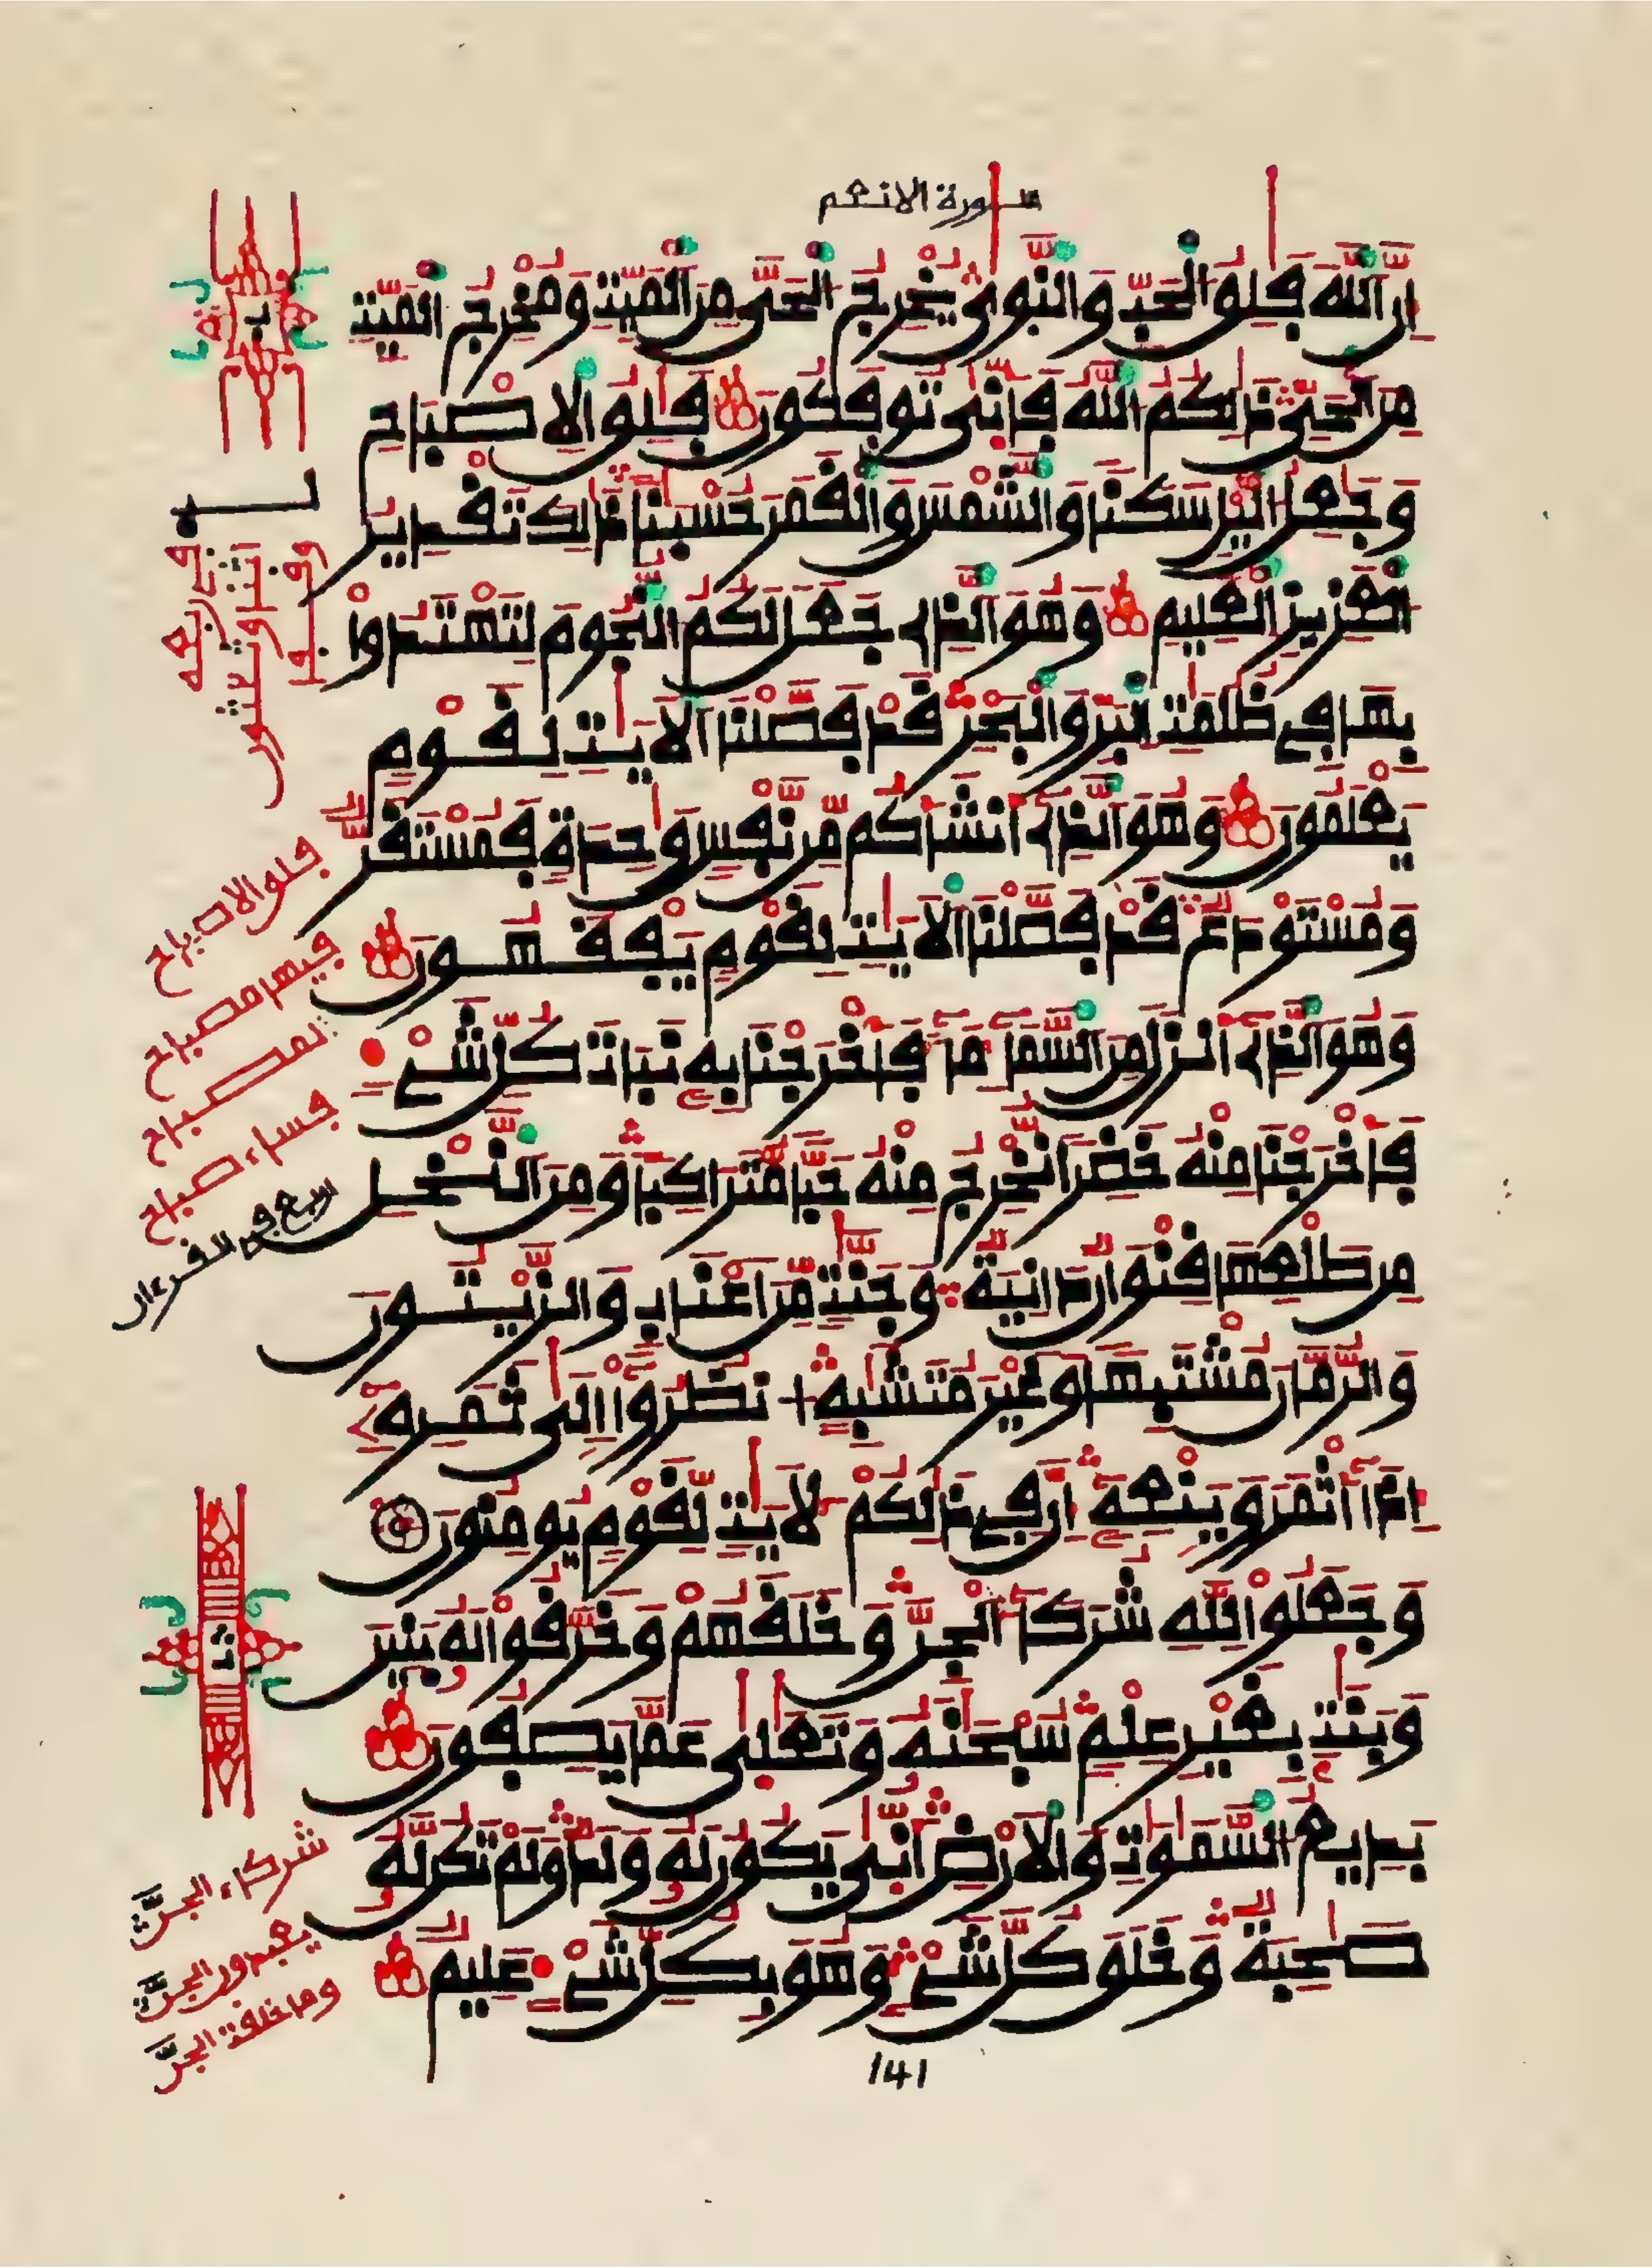 سورة الانعم
إِنَّ اَللَّهَ فَٰلِقُ اَلْحَبِّ وَالنَّوٜىٰ يُخْرِجُ اَلْحَيَّ مِنَ اَلْمَيِّتِ وَمُخْرِجُ اَلْمَيِّتِ
مِنَ اَلْحَيِّ ذَٰلِكُمُ اُللَّهُ فَأَنّٜىٰ تُوفَكُونَ فَٰلِقُ اُلِاصْبَاحِ
وَجَٰعِلُ اُليْلِ سَكَناً وَالشَّمْسَ وَالْقَمَرَ حُسْبَٰناً ذَٰلِكَ تَقْدِيرُ
اُلْعَزِيزِ اِلْعَلِيمِ وَهُوَ اَلذِے جَعَلَ لَكُمُ اُلنُّجُومَ لِتَهْتَدُواْ
بِهَا فِے ظُلُمَٰتِ اِلْبَرِّ وَالْبَحْرِ قَدْ فَصَّلْنَا اَلَايَٰتِ لِقَوْمٍ
يَعْلَمُونَ وَهُوَ اَلذِےٓ أَنشَأَكُم مِّن نَّفْسٍ وَٰحِدَةٍ فَمُسْتَقَرٌّ
وَمُسْتَوْدَعٌ قَدْ فَصَّلْنَا اَلَايَٰتِ لِقَوْمٍ يَفْقَهُونَ
وَهُوَ اَلذِےٓ أَنزَلَ مِنَ اَلسَّمَآءِ مَآءً فَأَخْرَجْنَا بِهِۦ نَبَاتَ كُلِّ شَےْءٍ
فَأَخْرَجْنَا مِنْهُ خَضِراً نُّخْرِجُ مِنْهُ حَبّاً مُّتَرَاكِباً وَمِنَ اَلنَّخْلِ
مِن طَلْعِهَا قِنْوَانٌ دَانِيَةٌ وَجَنَّٰتٍ مِّنَ اَعْنَابٍ وَالزَّيْتُونَ
وَالرُّمَّانَ مُشْتَبِهاً وَغَيْرَ مُتَشَٰبِهٍ اِ۟نظُرُوٓاْ إِلَىٰ ثَمَرِهِۦٓ
إِذَآ أَثْمَرَ وَيَنْعِهِۦٓ إِنَّ فِے ذَٰلِكُمْ لَأٓيَٰتٍ لِّقَوْمٍ يُومِنُونَ
وَجَعَلُواْ لِلهِ شُرَكَآءَ اَلْجِنَّ وَخَلَقَهُمْ وَخَرَّقُواْ لَهُۥ بَنِينَ
وَبَنَٰتِۢ بِغَيْرِ عِلْمٍ سُبْحَٰنَهُۥ وَتَعَٰلَىٰ عَمَّا يَصِفُونَ
بَدِيعُ اُلسَّمَٰوَٰتِ وَالَارْضِ أَنّٜىٰ يَكُونُ لَهُۥ وَلَدٌ وَلَمْ تَكُن لَّهُۥ
صَٰحِبَةٌ وَخَلَقَ كُلَّ شَےْءٍ وَهُوَ بِكُلِّ شَےْءٍ عَلِيمٌ
141
فلق الاصباح
فيها مصباح
المصباح
فساء صباح
اربع في القرءان
شركاء الجنَّ
يعبدون الجنَّ
وما خلقت الجنَّ